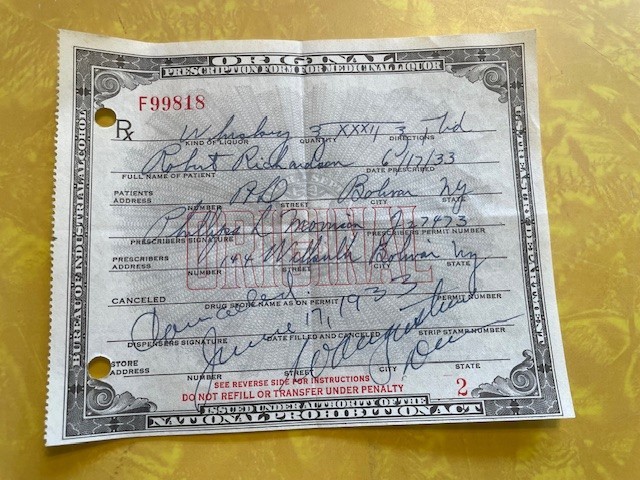 ORIGINAL
PRESCRIPTION FORM FOR MEDICINAL LIQUOR
F99818
Rx Whiskey ℥ XXXII ʒ Tid
KIND OF LIQUOR QUANTITY DIRECTIONS
Robert Richardson 6/17/33
FULL NAME OF PATIENT DATE PRESCRIBED
PATIENTS ADDRESS RD Bolivar NY
NUMBER STREET CITY STATE
Phillips L
PRESCRIBERS SIGNATURE PRESCRIBERS PERMIT NUMBER
PRESCRIBERS ADDRESS 144 Bolivar Ny
NUMBER STREET CITY STATE
ORIGINAL
CANCELED
DRUG STORE NAME AS ON PERMIT PERMIT NUMBER
Cancelled
June 17, 1933
DISPENSERS SIGNATURE DATE FILLED AND CANCELED STRIP STAMP NUMBER
STORE ADDRESS
NUMBER STREET CITY STATE
SEE REVERSE SIDE FOR INSTRUCTIONS
DO NOT REFILL OR TRANSFER UNDER PENALTY 2
ISSUED UNDER AUTHORITY OF THE
NATIONAL PROHIBITION ACT
BUREAU OF INDUSTRIAL ALCOHOL
U.S. TREASURY DEPARTMENT